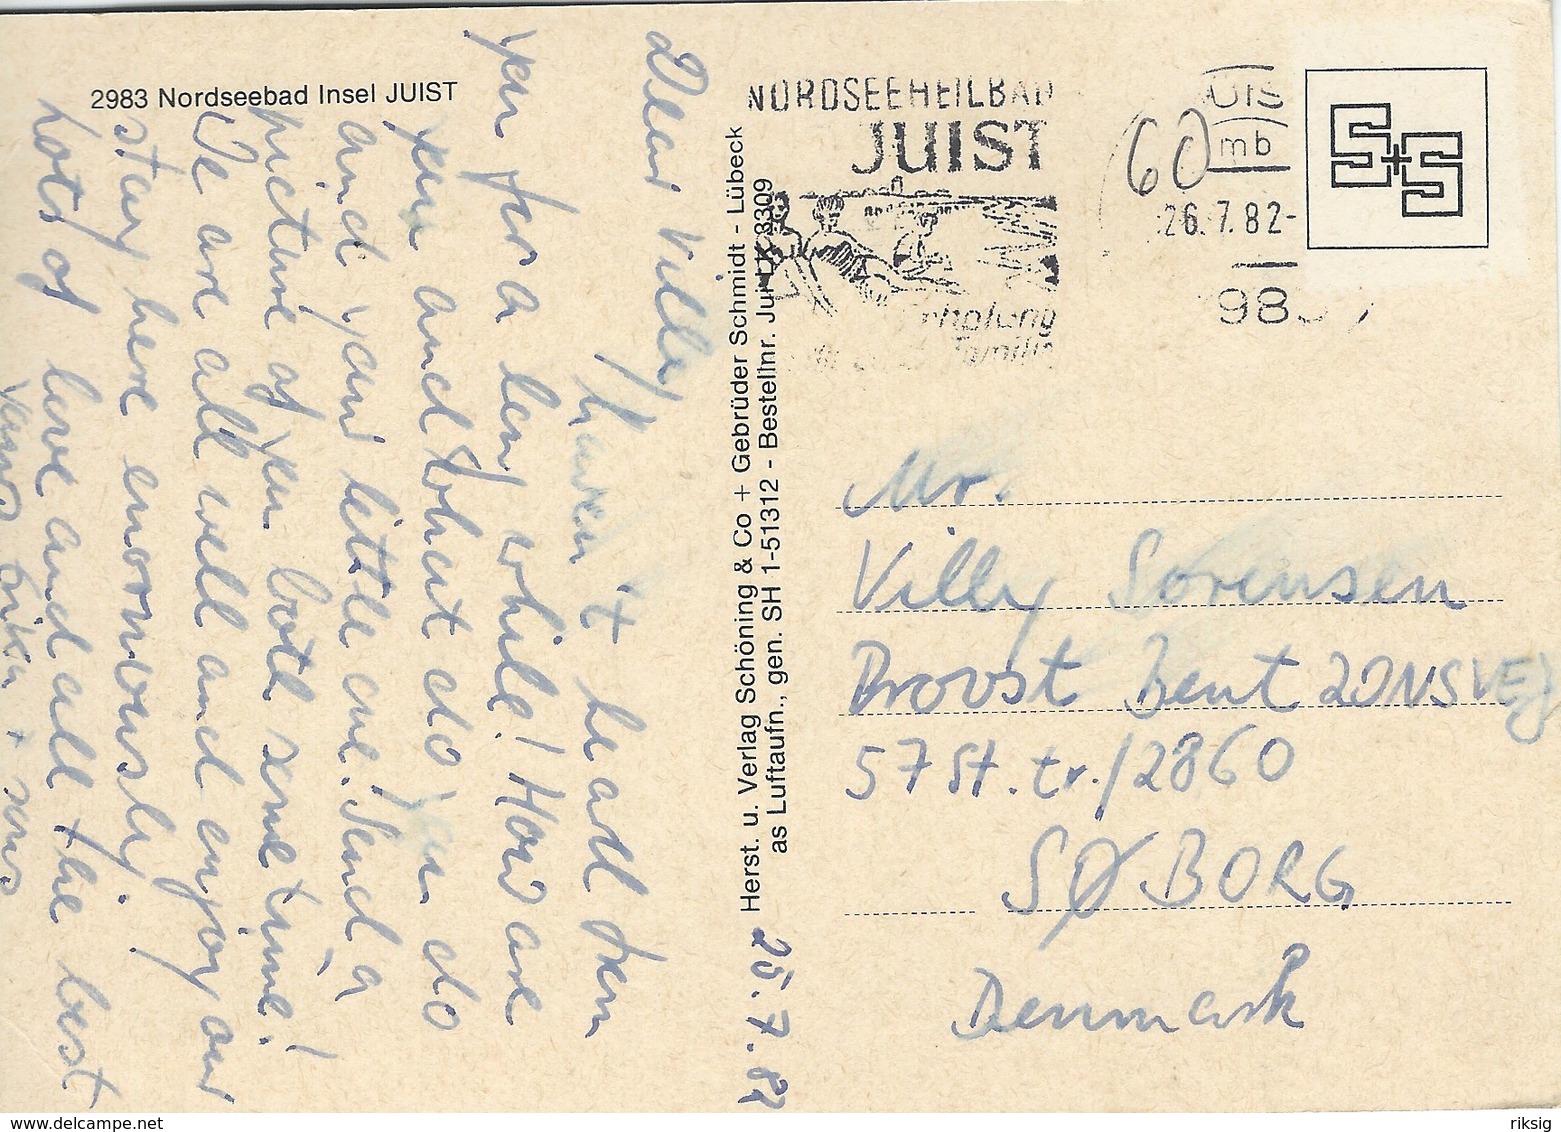 2983 Nordseebad Insel JUIST
Dear Villy!
haven't heard from
you for a long while! How are
you and what do you do
and your little one. Send a
picture of you both sometime!
We are all well and enjoy our
stay here enormously.
Lots of love and all the best
Yours Erika + sons
25.7.82
Herst. u. Verlag Schöning & Co + Gebrüder Schmidt - Lübeck
as Luftaufn., gen. SH 1-51312 - Bestellnr. Jui LK 3309
NORDSEEHEILBAD
JUIST
60
mb
26.7.82-
S+S
Mr.
Villy Sorensen
Provst Bent ZONSVEJ
57 st. tr./2860
SØBORG
Denmark
riksig